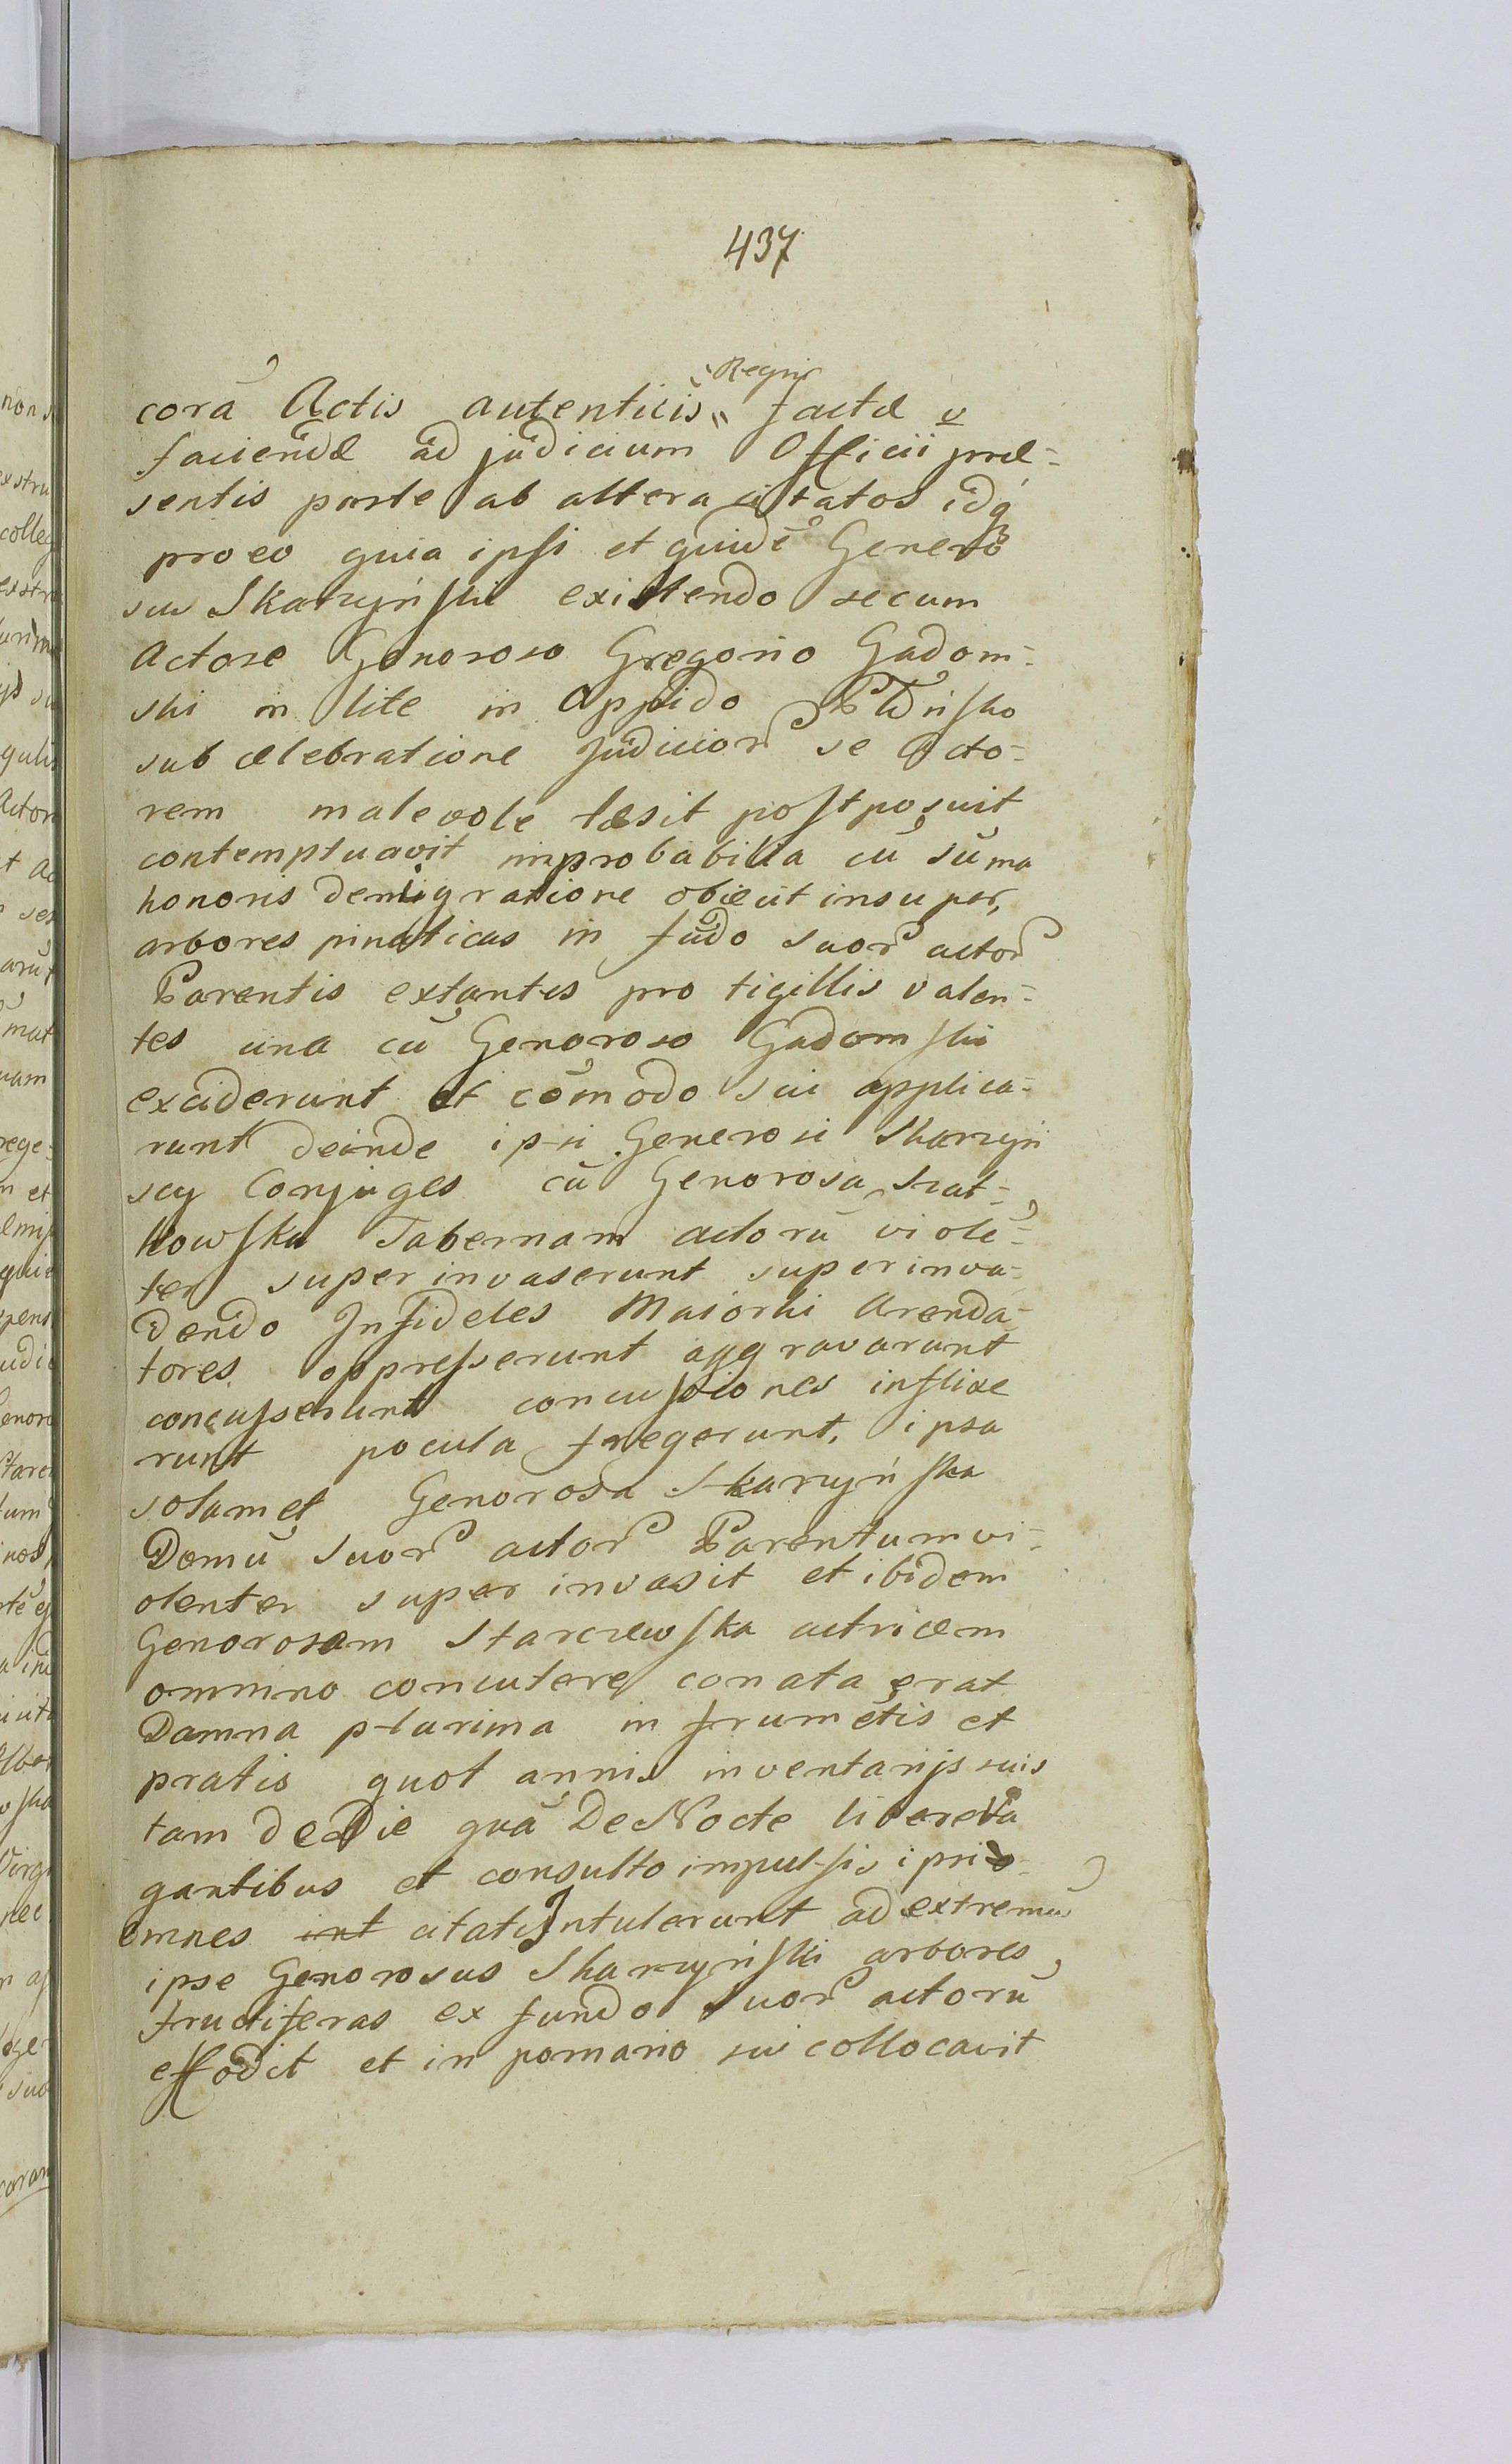 437
Regni
corā Actis autenticis〃 factæ v
faciendæ ad judicium Officii præ-
sentis parte ab altera citatos idq
pro eo quia ipsi et quidē Genero
sus Skarzyński existendo secum
Actore Generoso Gregorio Gadom-
ski in lite in Oppido Płońsko
sub celebratione Judicior se Acto-
rem malevole læsit postposuit
contemptuavit improbabilia cū sūma
honoris denigratione obiecit insuper,
arbores pinaticas in fūdo suor actor
Parentis extantes pro tigillis valen-
tes una cū Generoso Gadomski
exciderunt et cōmodo sui applica-
runt deinde ipsi Generosi Skarzyń
scy Conjuges cū Generosa Szat-
kowska Tabernam actorū violē-
ter superinvaserunt superinva-
dendo Infideles Maiorki Arenda-
tores oppresserunt aggravarunt
concusserunt concussiones inflixe
runt pocula fregerunt, ipsa
solamet Generosa Skarzyńska
Domū suor actor Parentum vi-
olenter super invasit et ibidem
Generosam Starczewska actricem
omnino concutere conata erat
Damna plurima in frumētis et
pratis quot annis inventarijs suis
tam de Die quā De Nocte libere va
gantibus et consulto impulsis ipsi
omnes int citati Intulerunt ad extremū
ipse Generosus Skarzyński arbores
fructiferas ex fundo suor actorū
effodit et in pomario sui collocavit